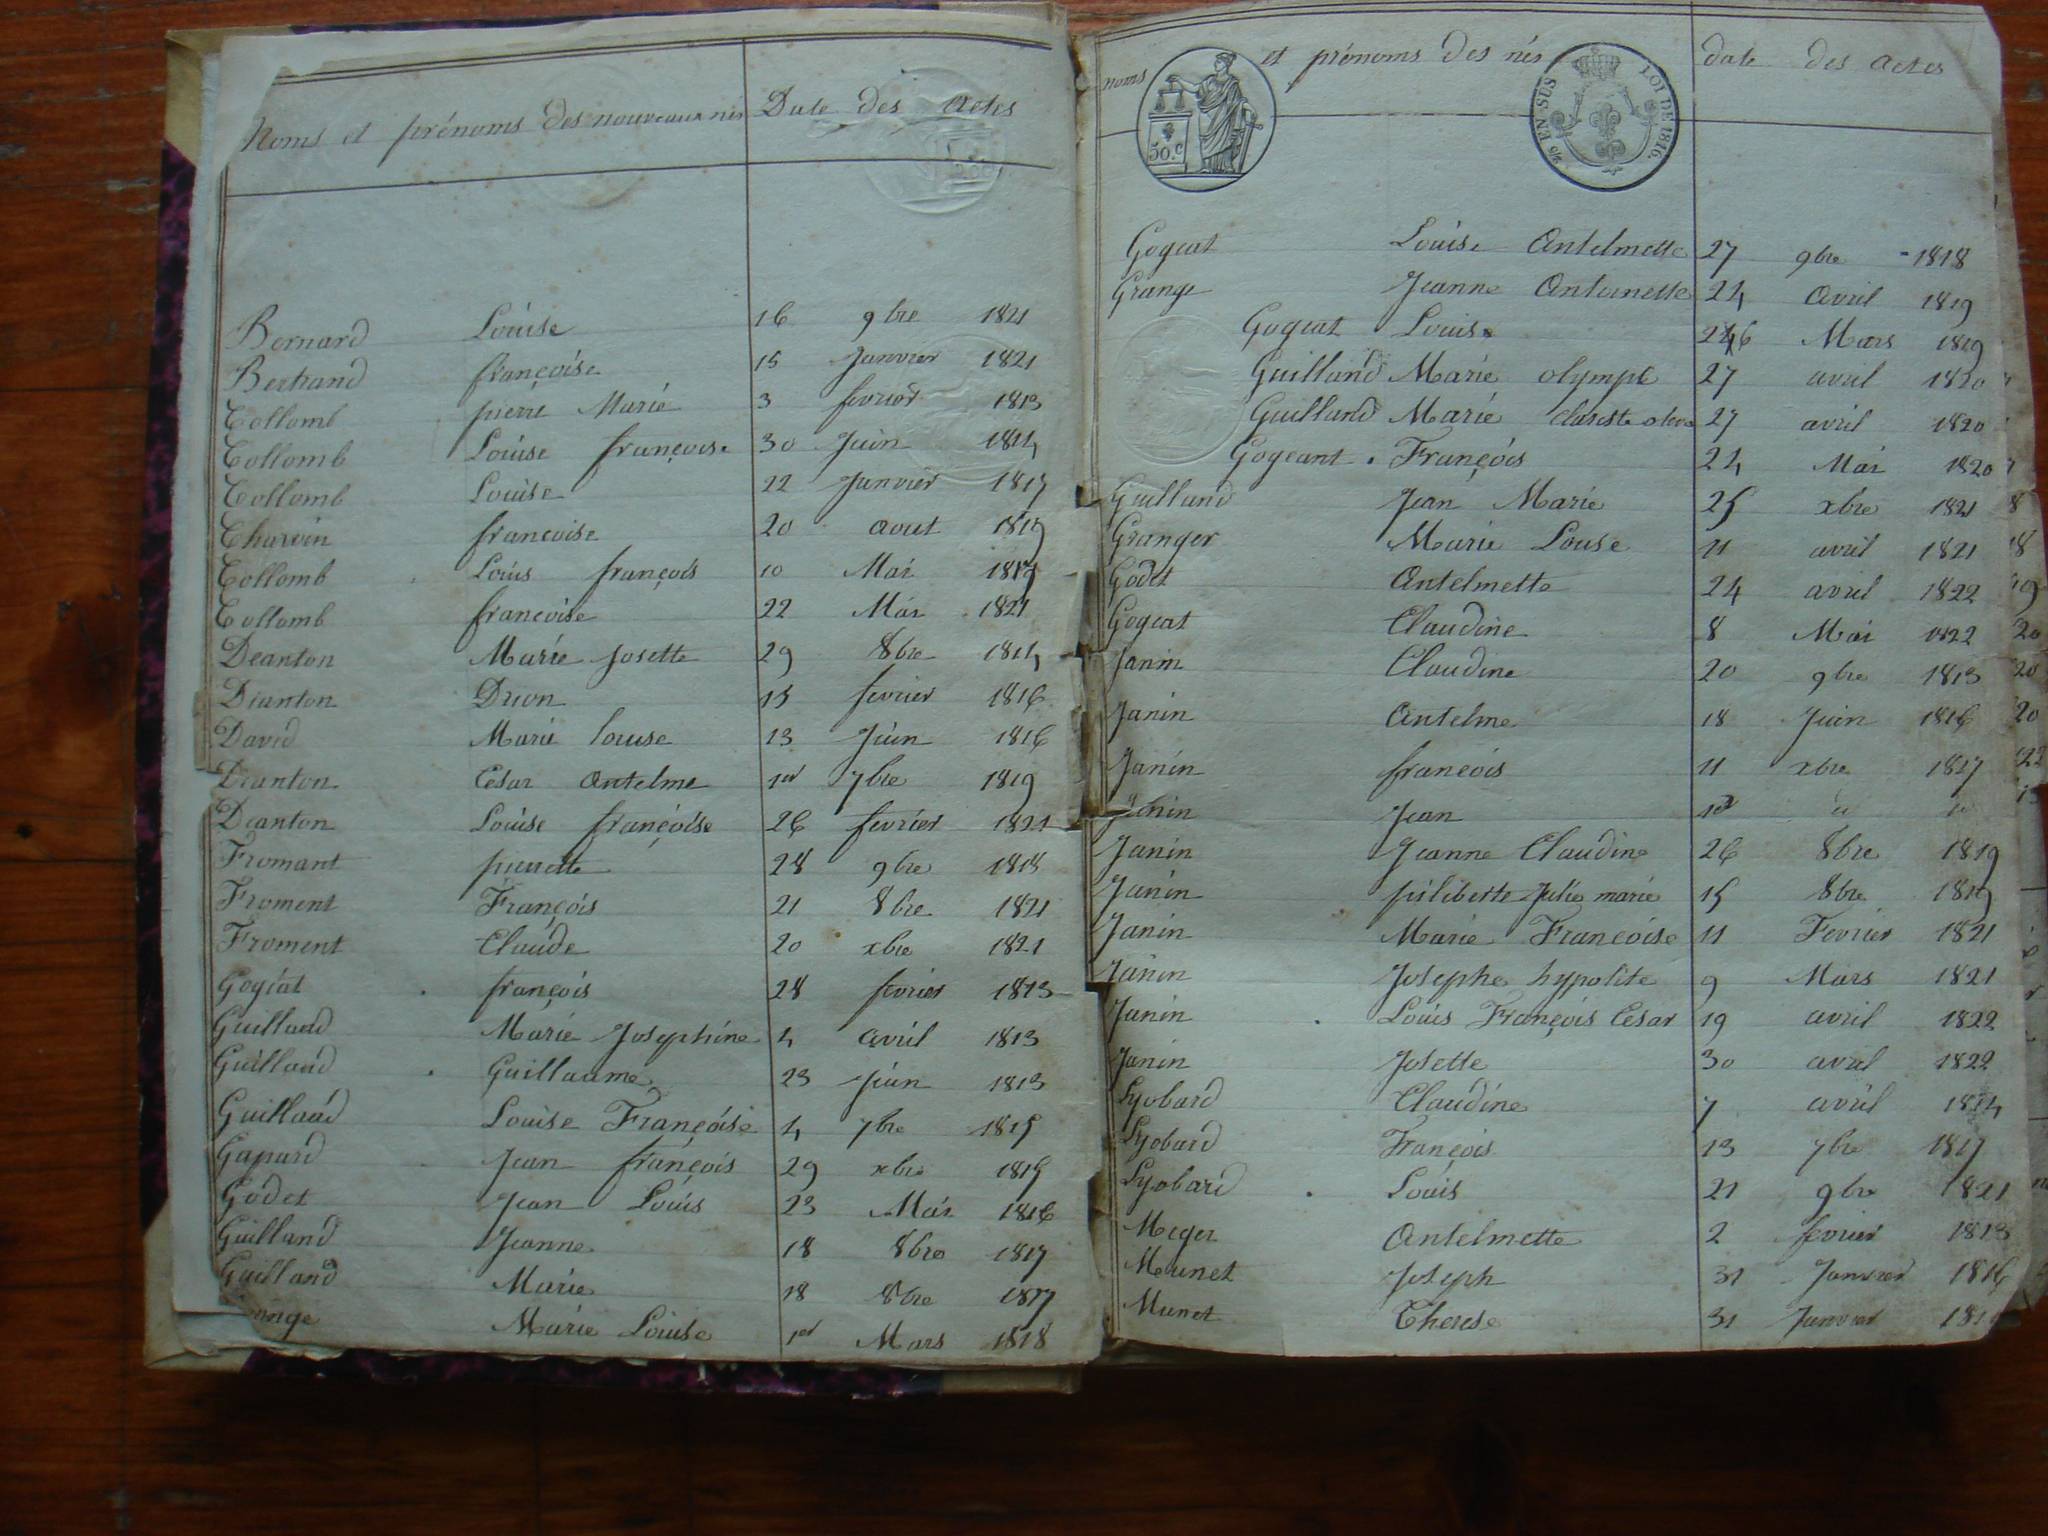 Noms et prénoms des nouveaux nés Date des Actes
Bernard Louise 16 9bre 1821
Bertrand françoise 15 Janvier 1821
Collomb pierre Marie 3 fevrier 1813
Collomb Louise françoise 30 Juin 1814
Collomb Louise 22 Janvier 1817
Charvin francoise 20 aout 1819
Collomb Louis françois 10 Mai 1819
Collomb francoise 22 Mai 1821
Deanton Marie Josette 29 8bre 1814
Dianton Drion 15 fevrier 1816
David Marie louise 13 Juin 1816
Dianton César Antelme 1er 7bre 1819
Dianton Louise françoise 26 fevrier 1821
Fromant pierrette 28 9bre 1818
Froment François 21 8bre 1821
Froment Claude 20 xbre 1821
Gogeat françois 28 fevrier 1813
Guilland Marie Josephine 4 avril 1813
Guilland Guillaume 23 Juin 1813
Guilland Louise Françoise 4 7bre 1815
Gapard Jean françois 29 xbre 1815
Godet Jean Louis 23 Mai 1816
Guilland Jeanne 18 8bre 1817
Guilland Marie 18 8bre 1817
ange Marie Louise 1er Mars 1818
noms et prénoms des nés date des actes
50.c
EN SUS LOI DE 1816.
Gogeat Louise Antelmette 27 9bre 1818
Grange Jeanne Antoinette 24 Avril 1819
Gogeat Louise 26 Mars 1819
Guilland Marie olympe 27 avril 1820
Guilland Marie 27 avril 1820
Gogeant François 24 Mai 1820
Guilland Jean Marie 25 xbre 1821
Granger Marie Louse 11 avril 1821
Godet Antelmette 24 avril 1822
Gogeat Claudine 8 Mai 1822
Janin Claudine 20 9bre 1813
Janin Antelme 18 Juin 1816
Janin francois 11 xbre 1817
Janin Jean
Janin Jeanne Claudine 26 8bre 1819
Janin pilibette Julie marie 15 8bre 1819
Janin Marie Francoise 11 Fevrier 1821
Janin Josephe hypolite 9 Mars 1821
Janin Louis François Cesar 19 avril 1822
Janin Josette 30 avril 1822
Lyobard Claudine 7 avril 1814
Lyobard François 13 7bre 1817
Lyobard Louis 21 9bre 1821
Meger Antelmette 2 fevrier 1813
Meunet Joseph 31 Janvier 1816
Munet Therese 31 Janvier